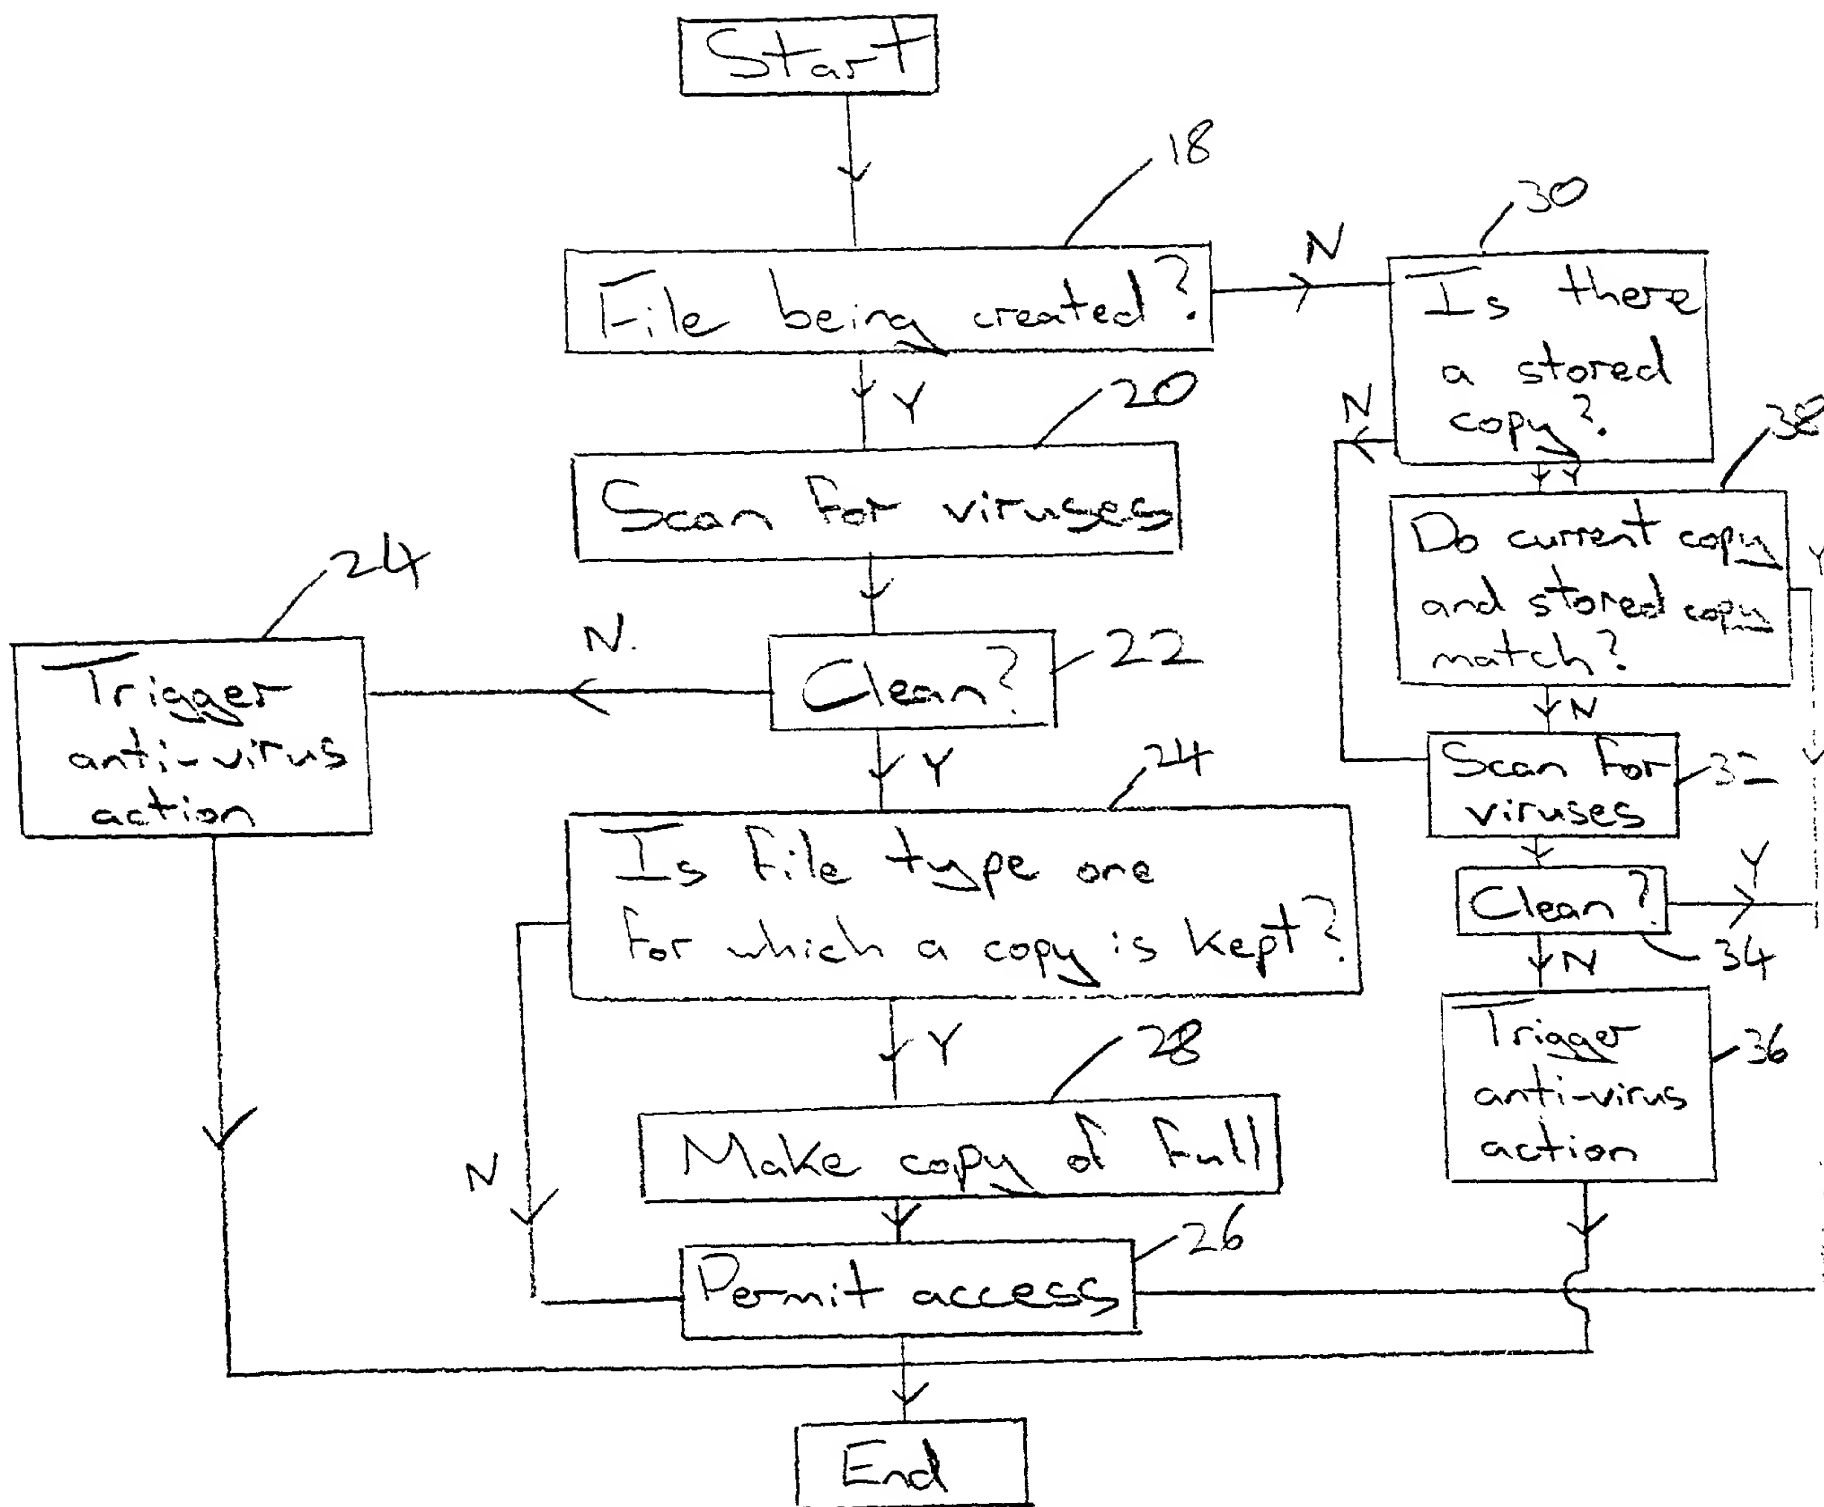 Start
18
File being created?
N
30
Is there
a stored
copy?
Y
20
N
Y
38
Scan for viruses
Do current copy
and stored copy
match?
Y
24
N.
Clean?
22
N
Trigger
anti-virus
action
Y
24
Scan for
viruses
32
Is file type one
for which a copy is kept?
Clean?
Y
34
N
Y
28
Trigger
anti-virus
action
36
Make copy of full
N
26
Permit access
End